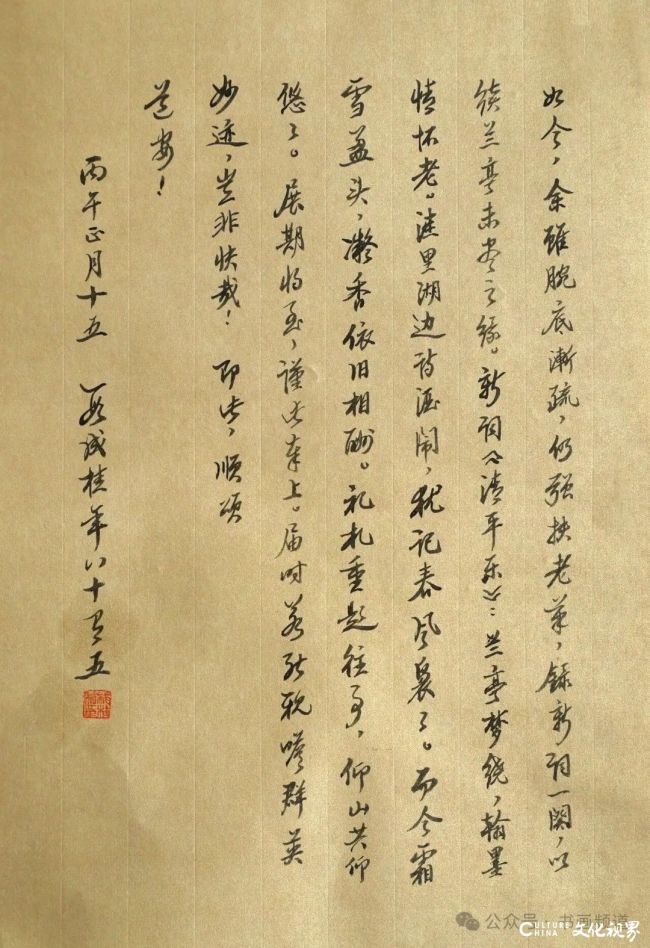 如今，余虽腕底渐疏，仍强扶老笔，录新词一阕，以
续兰亭未尽之缘。新词《清平乐》：兰亭梦绕，翰墨
情怀老。洼里湖边诗酒闹，犹记春风袅袅。而今霜
雪盖头，凝香依旧相酬。礼札重题往事，仰山共仰
悠悠。展期将至，谨此奉上。届时若能耽嗜群英
妙迹，岂非快哉！即此，顺颂
道安！
丙午正月十五 段成桂年八十有五
公众号·书画频道
CULTURE CHINA 文化视界